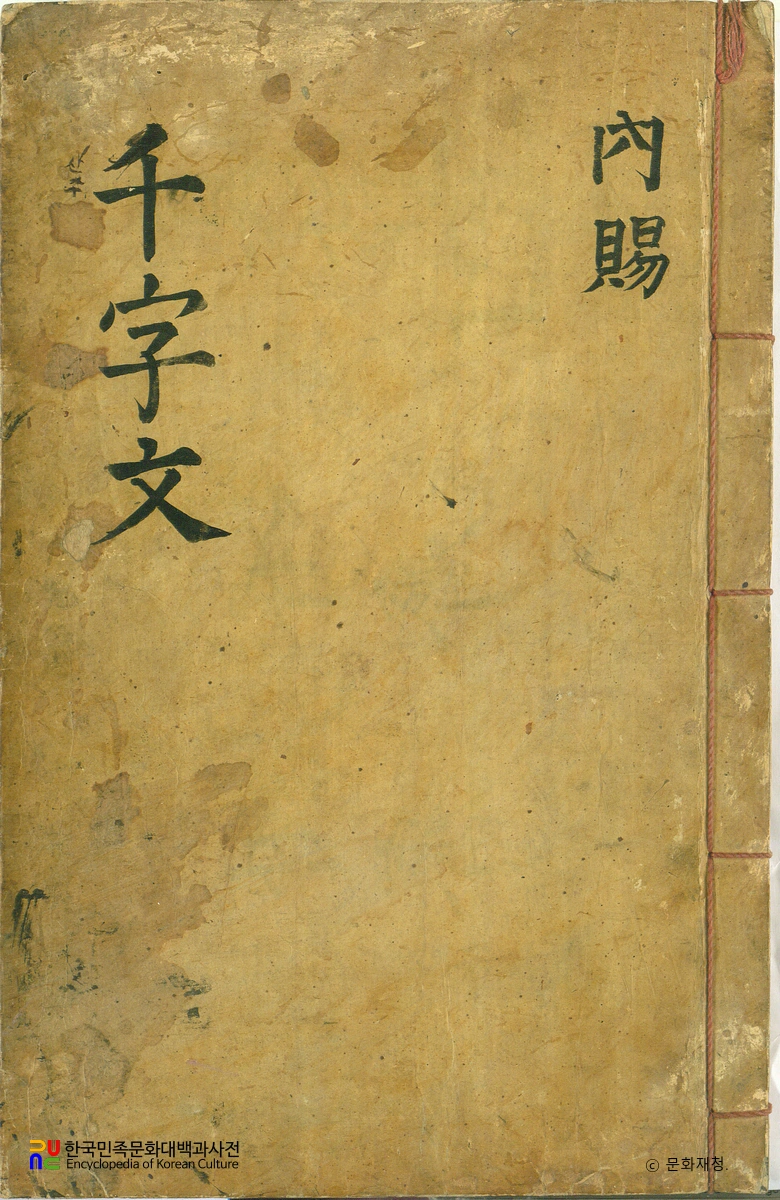 內賜
千字文
한국민족문화대백과사전
Encyclopedia of Korean Culture
© 문화재청.